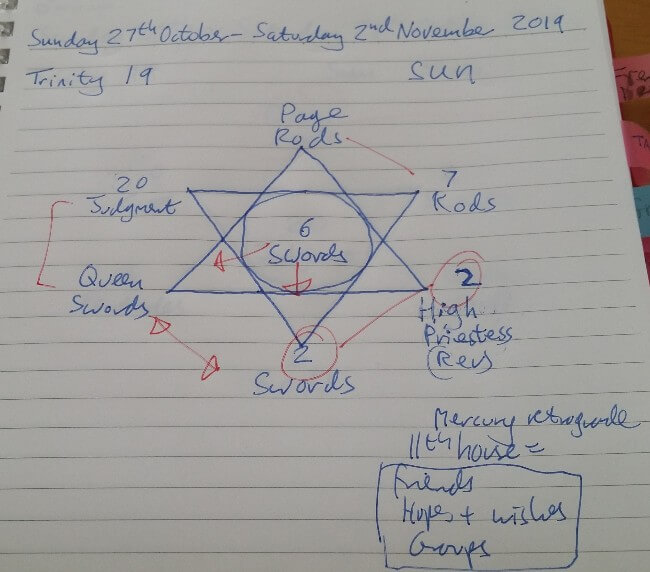 Sunday 27th October - Saturday 2nd November 2019
Trinity 19
Sun
Page
Rods
20
Judgment
7
Rods
6
Swords
Queen
Swords
2
High
Priestess
(Rev)
2
Swords
Mercury retrograde
11th house =
Friends
Hopes + wishes
Groups